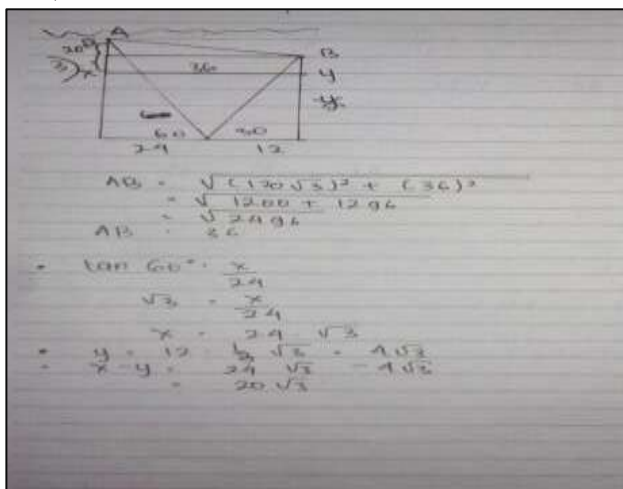 A
20
3) x
36
B
y
y
60 30
24 12
AB = √(120√3)² + (36)²
= √1200 + 1296
= √2496
AB = 36
• tan 60° = x/24
√3 = x/24
x = 24 √3
• y = 12 √3 = 4√3
x - y = 24 √3 - 4√3
= 20 √3